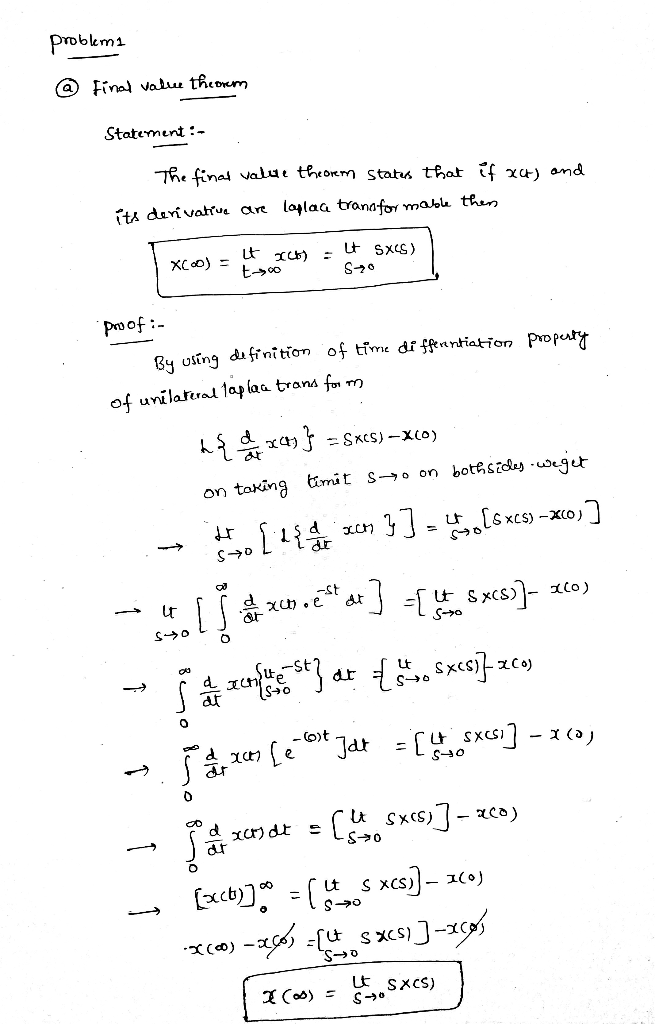 Problem 1
ⓐ Final value theorem
Statement :-
The final value theorem states that if x(t) and
its derivative are laplace transformable then
X(∞) = Lt t→∞ x(t) = Lt s→0 SX(S)
proof :-
By using definition of time differentiation property
of unilateral laplace transform
L{ d/dt x(t) } = SX(S) - X(0)
on taking limit s→0 on both sides we get
→ Lt s→0 [ L{ d/dt x(t) } ] = Lt s→0 [SX(S) - x(0)]
→ Lt s→0 [ ∫₀^∞ d/dt x(t) . e^-st dt ] = [ Lt s→0 SX(S) ] - x(0)
→ ∫₀^∞ d/dt x(t) { Lt s→0 e^-st } dt = [ Lt s→0 SX(S) ] - x(0)
→ ∫₀^∞ d/dt x(t) [ e^-(0)t ] dt = [ Lt s→0 SX(S) ] - x(0)
→ ∫₀^∞ d/dt x(t) dt = [ Lt s→0 SX(S) ] - x(0)
→ [x(t)]₀^∞ = [ Lt s→0 SX(S) ] - x(0)
x(∞) - x(0) = [ Lt s→0 SX(S) ] - x(0)
x(∞) = Lt s→0 SX(S)